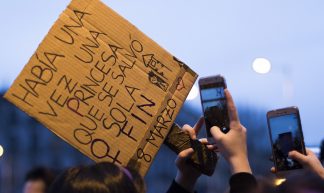 HABÍA UNA
VEZ UNA
PRINCESA
QUE SE SALVÓ
SOLA
FIN
8 MARZO